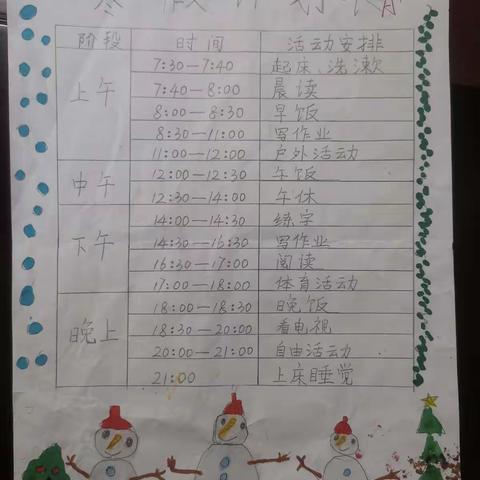 寒假计划表
阶段 时间 活动安排
上午 7:30—7:40 起床、洗漱
7:40—8:00 晨读
8:00—8:30 早饭
8:30—11:00 写作业
11:00—12:00 户外活动
中午 12:00—12:30 午饭
12:30—14:00 午休
下午 14:00—14:30 练字
14:30—16:30 写作业
16:30—17:00 阅读
17:00—18:00 体育活动
晚上 18:00—18:30 晚饭
18:30—20:00 看电视
20:00—21:00 自由活动
21:00 上床睡觉